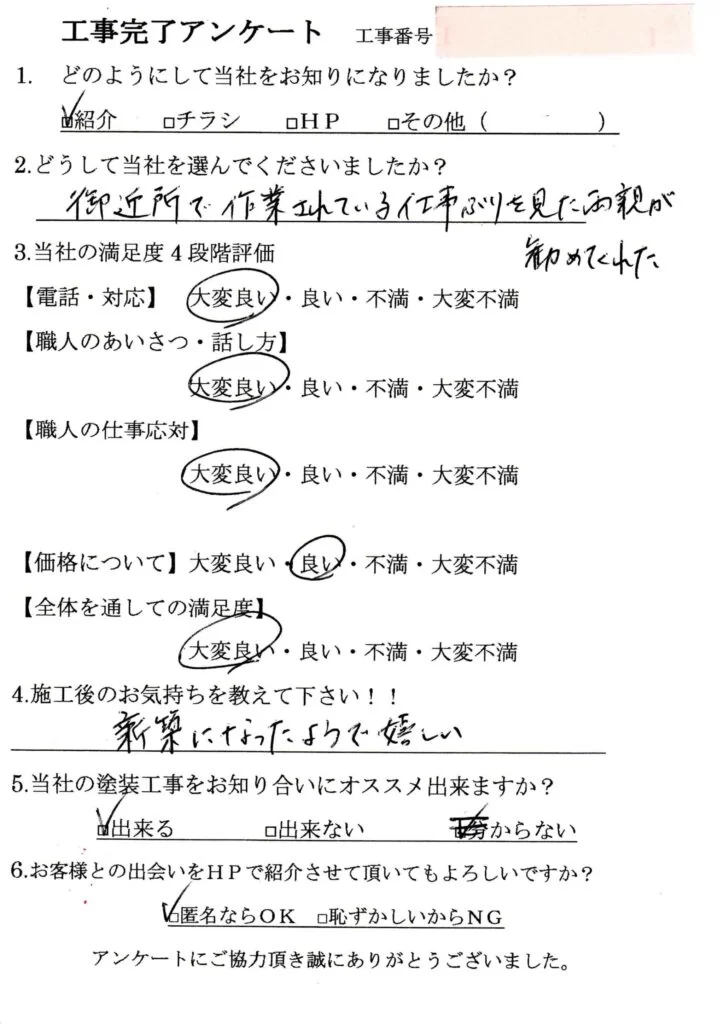 工事完了アンケート 工事番号
1. どのようにして当社をお知りになりましたか？
☑紹介 □チラシ □ＨＰ □その他（ ）
2.どうして当社を選んでくださいましたか？
御近所で作業されている仕事ぶりを見た両親が
勧めてくれた
3.当社の満足度４段階評価
【電話・対応】 大変良い・良い・不満・大変不満
【職人のあいさつ・話し方】
大変良い・良い・不満・大変不満
【職人の仕事応対】
大変良い・良い・不満・大変不満
【価格について】大変良い・良い・不満・大変不満
【全体を通しての満足度】
大変良い・良い・不満・大変不満
4.施工後のお気持ちを教えて下さい！！
新築になったようで嬉しい
5.当社の塗装工事をお知り合いにオススメ出来ますか？
☑出来る □出来ない ☑分からない
6.お客様との出会いをＨＰで紹介させて頂いてもよろしいですか？
☑匿名ならＯＫ □恥ずかしいからＮＧ
アンケートにご協力頂き誠にありがとうございました。